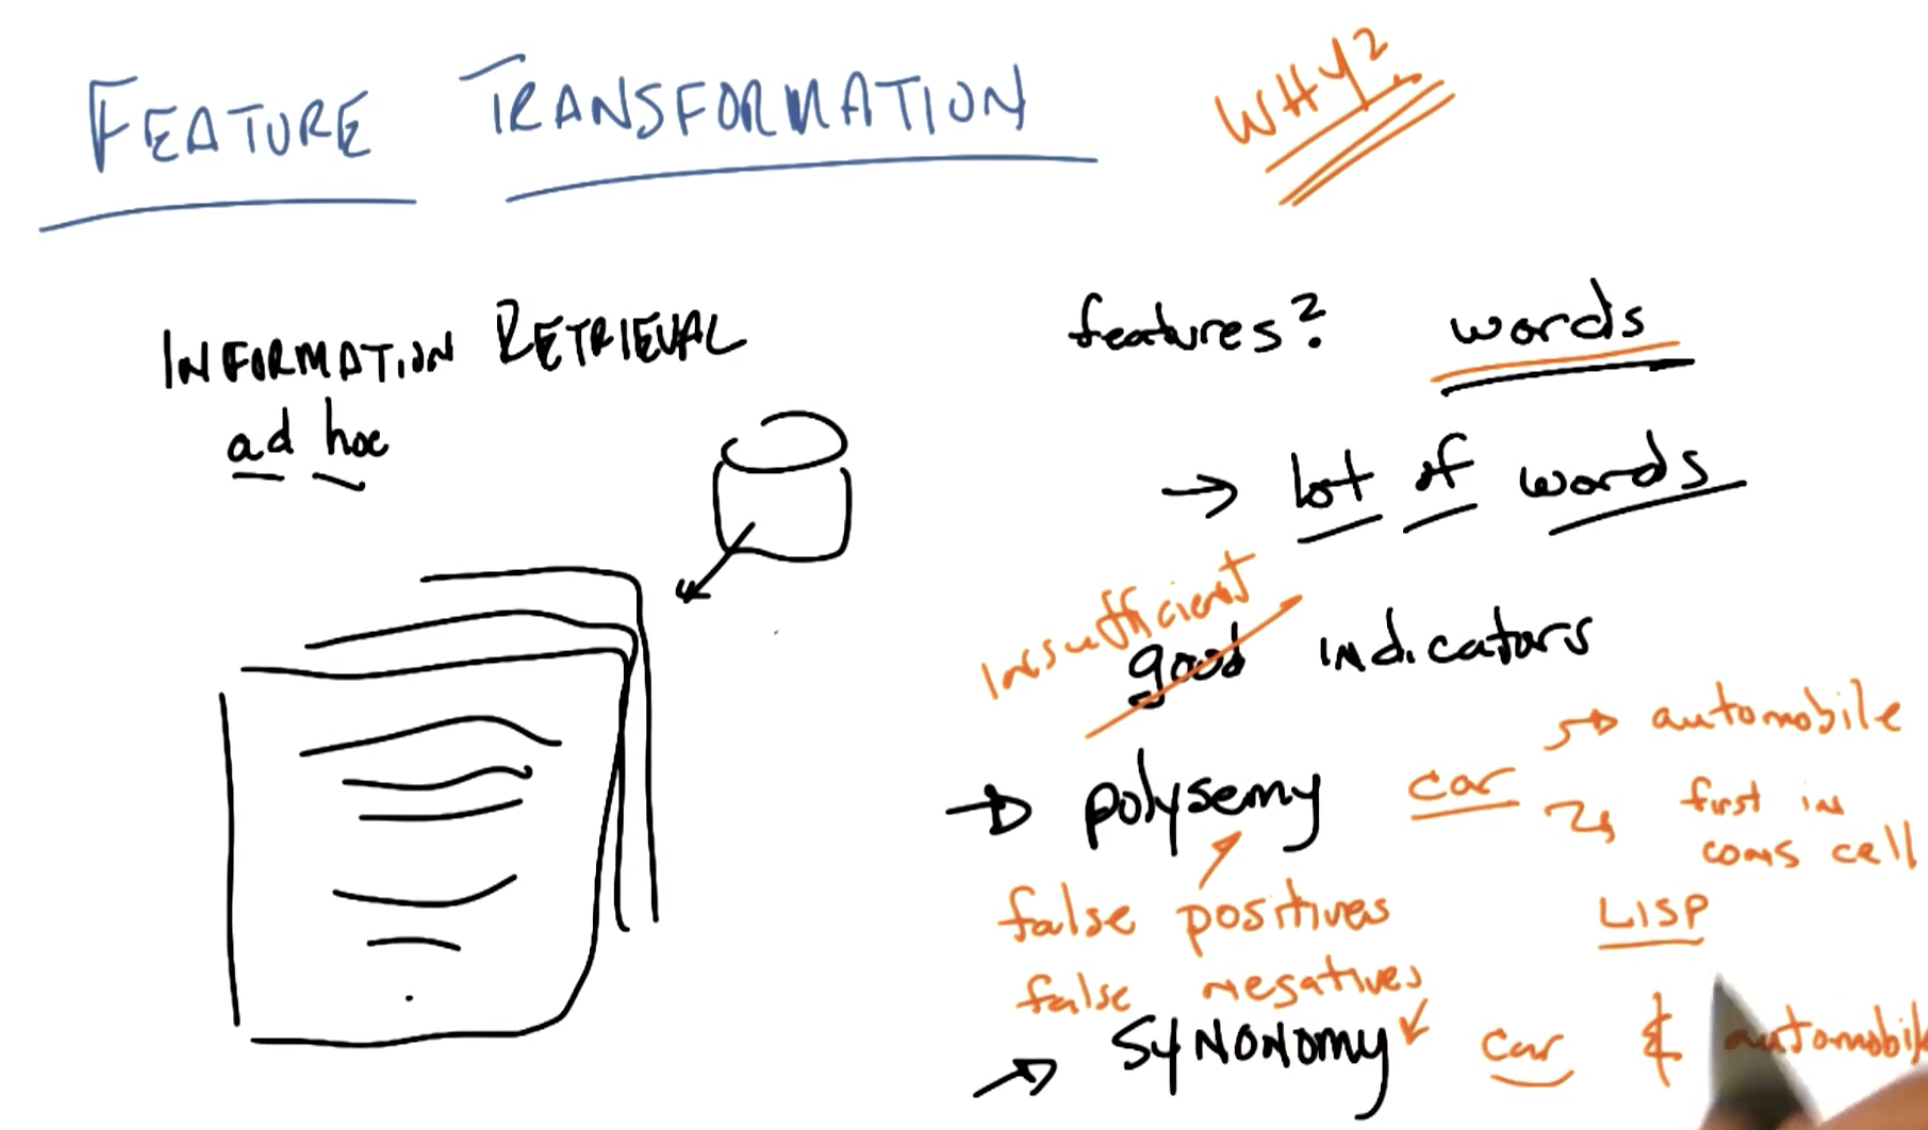 FEATURE TRANSFORMATION
WHY?
INFORMATION RETRIEVAL
ad hoc
features? words
→ lot of words
insufficient
good indicators
→ automobile
→ polysemy car
first in
cons cell
false positives
LISP
false negatives
→ SYNONOMY car & automobile